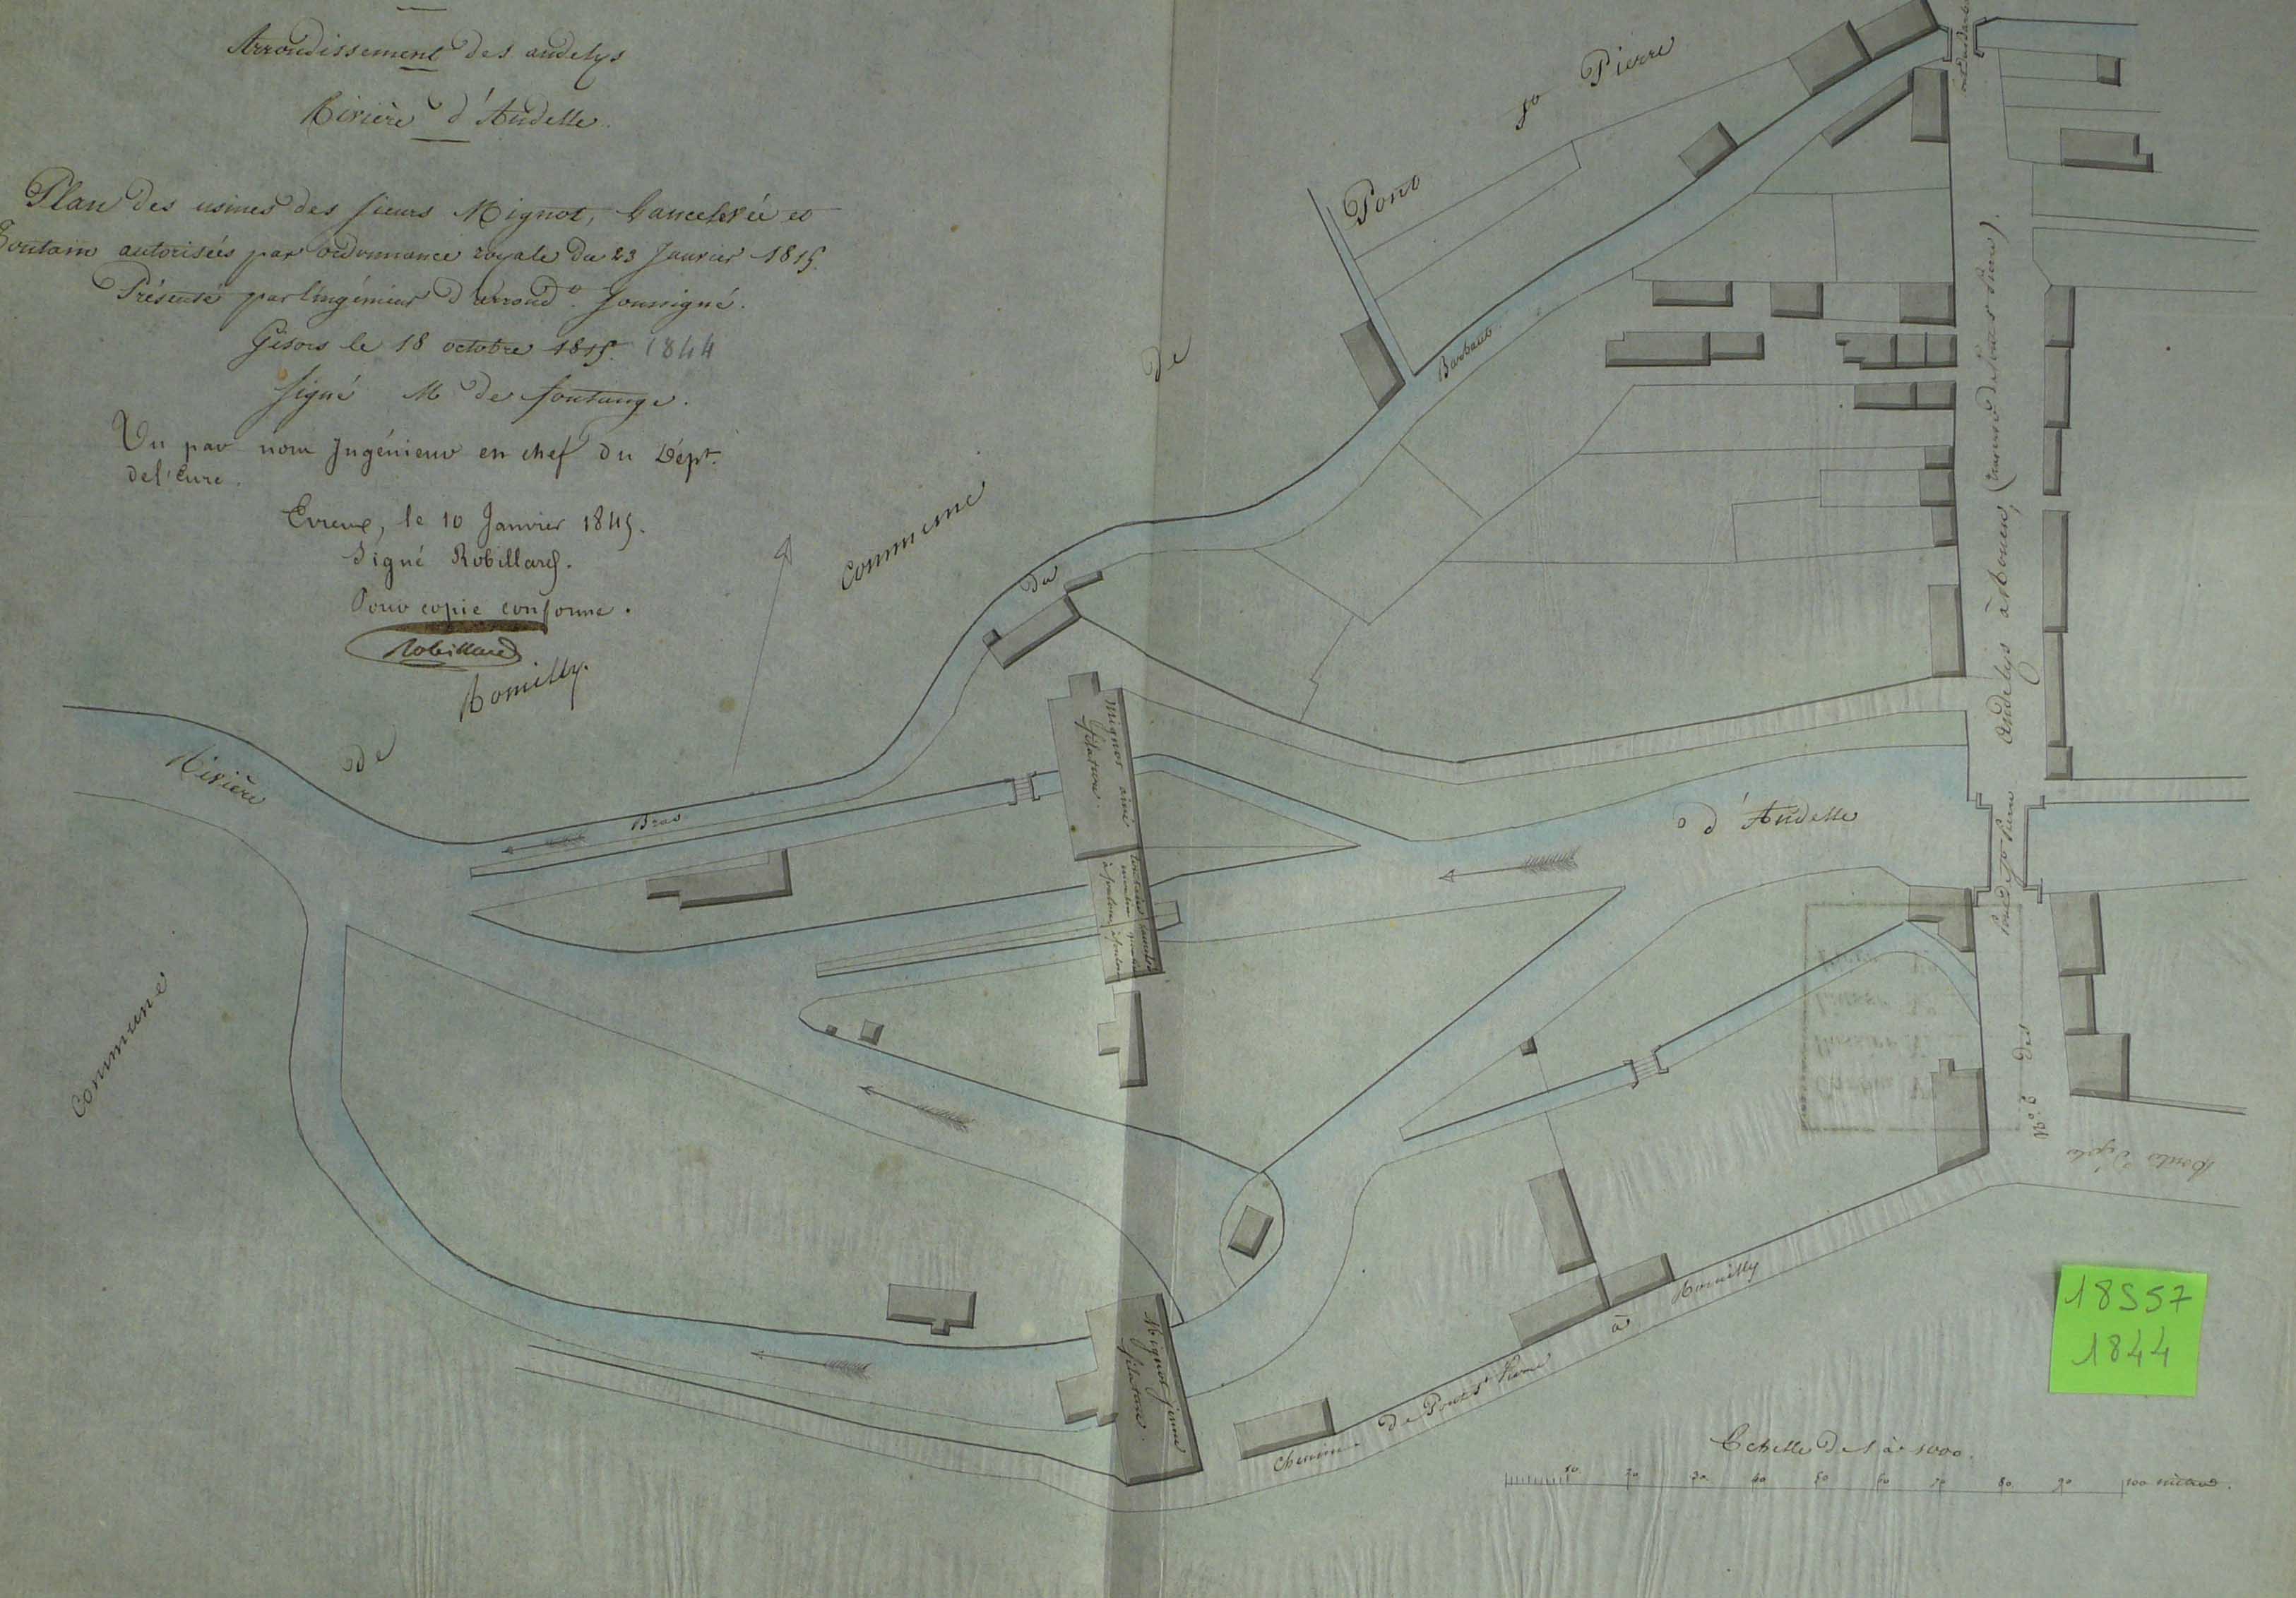 Arrondissement des andelys
Rivière d'Andelle
Plan des usines des sieurs Mignot, Lancelevée et
Toutain autorisées par ordonnance royale du 23 Janvier 1815.
Présenté par l'ingénieur d'arrond.t soussigné.
Gisors le 18 octobre 1815. 1844
Signé M de fontange.
Vu par nous Ingénieur en chef du Dépt.
de l'Eure.
Evreux, le 10 Janvier 1845.
Signé Robillard.
Pour copie conforme.
Robillard
Commune de Pont St Pierre
Commune de Romilly.
Rivière d'Andelle
Bras du Barbault
Mignot ainé
filature.
Toutain
moulin
à foulon
moulin
à foulon
Mignot jeune
filature.
Pont de St Pierre
No. 6 des Andelys à Rouen, (traverse de Pont St Pierre).
Chemin de Pont St Pierre à Romilly
18S57
1844
Echelle de 1 à 1000.
10 20 30 40 50 60 70 80 90 100 mètres.